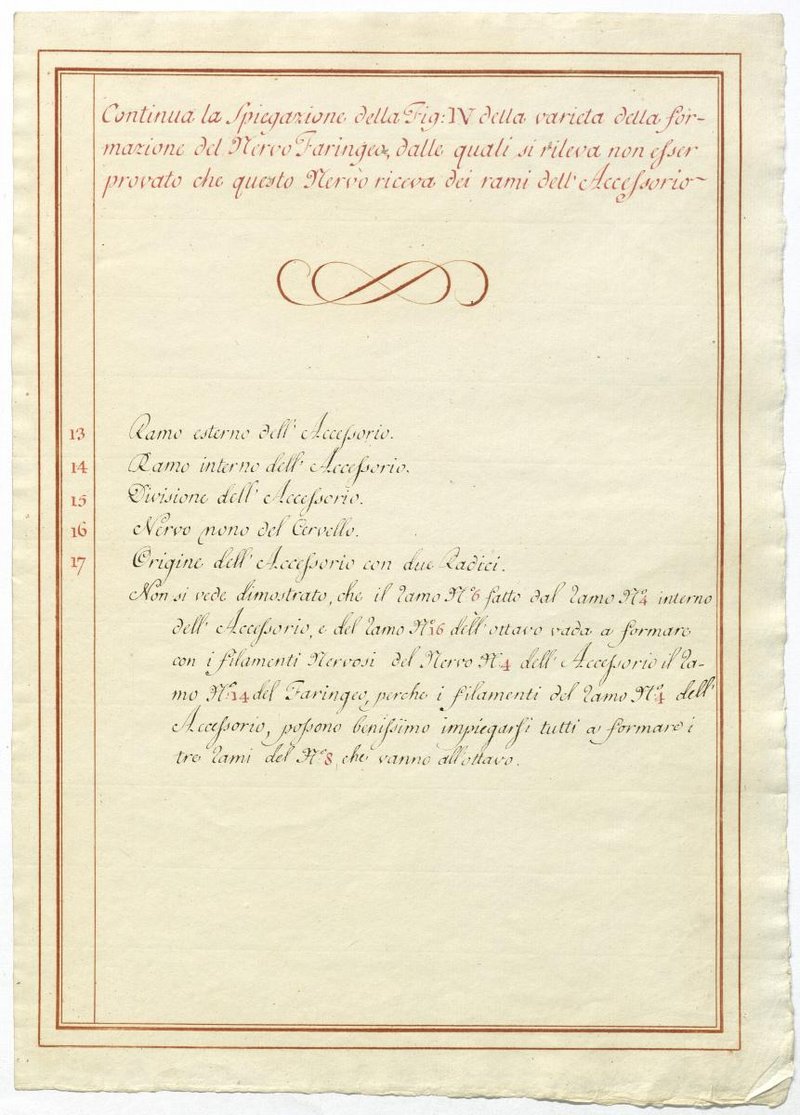 Continua la Spiegazione della Fig: IV della varieta della for-
mazione del Nervo Faringeo, dalle quali si rileva non esser
provato che questo Nervo riceva dei rami dell' Accessorio
13 Ramo esterno dell' Accessorio.
14 Ramo interno dell' Accessorio.
15 Divisione dell' Accessorio.
16 Nervo nono del Cervello.
17 Origine dell' Accessorio con due Radici.
Non si vede dimostrato, che il ramo N.º 6 fatto dal ramo N.º 4 interno
dell' Accessorio, e del ramo N.º 16 dell' ottavo vada a formare
con i filamenti Nervosi del Nervo N.º 4 dell' Accessorio il ra-
mo N.º 14 del Faringeo, perche i filamenti del ramo N.º 4 dell'
Accessorio, possono benissimo impiegarsi tutti a formare i
tre rami del N.º 8, che vanno all'ottavo.